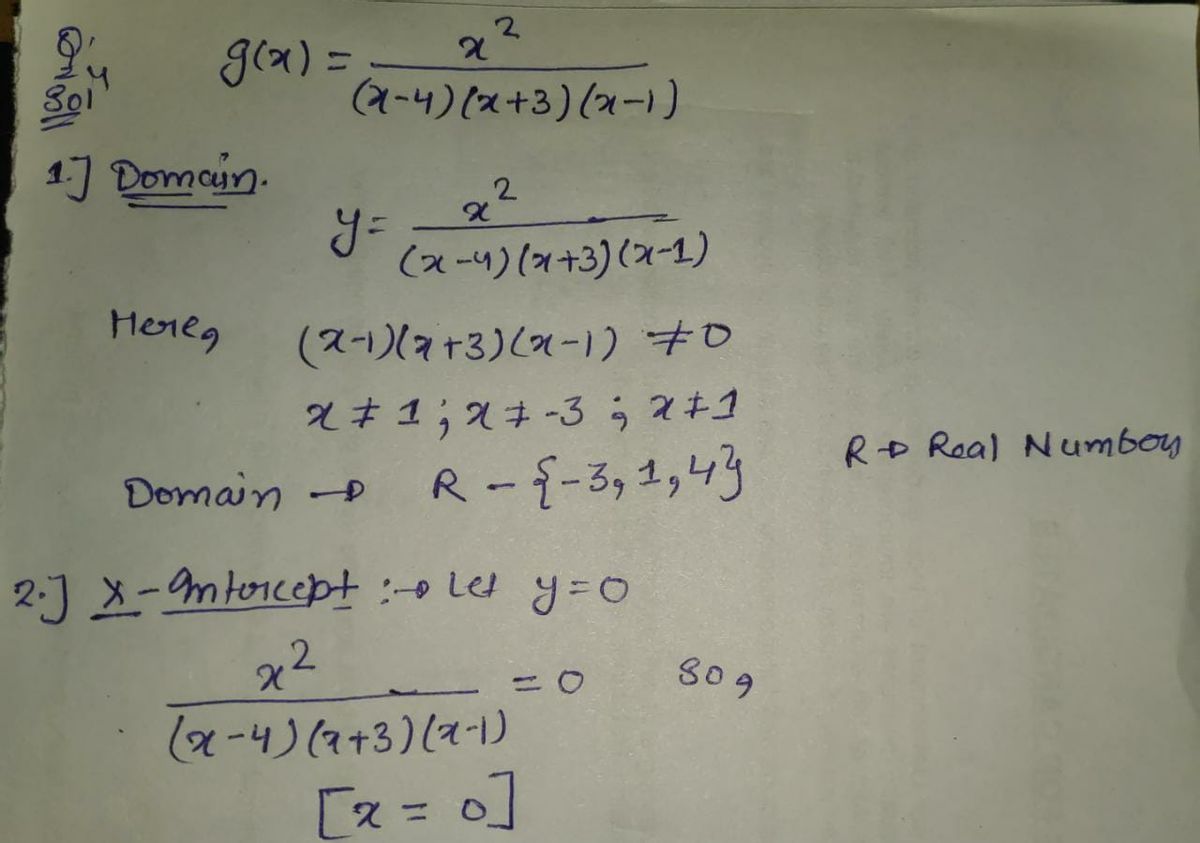 Q.
24
Sol
g(x) = x² / (x-4)(x+3)(x-1)
1.] Domain.
y = x² / (x-4)(x+3)(x-1)
Here, (x-1)(x+3)(x-1) ≠ 0
x ≠ 1 ; x ≠ -3 ; x ≠ 1
Domain → R - {-3, 1, 4} R → Real Numbers
2.] X-Intercept :→ Let y=0
x² / (x-4)(x+3)(x-1) = 0 So,
[x = 0]